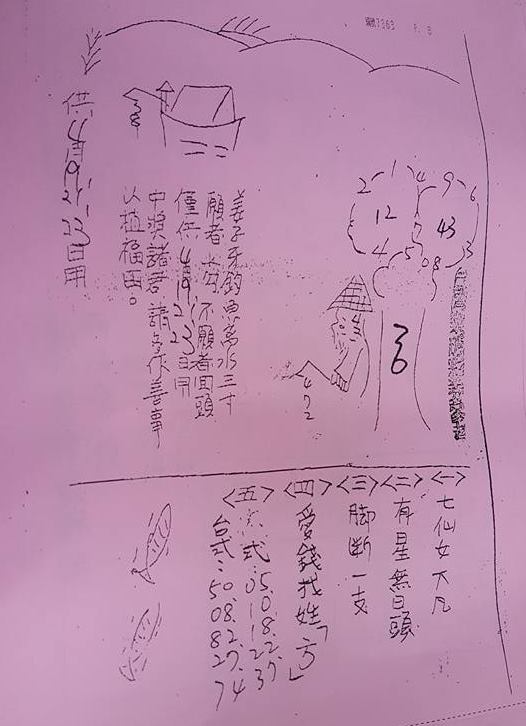 供4月22、23日用
姜子牙釣魚離水三寸
願者 當 不願者回頭
僅供4月22、23日用
中獎諸君 請多做善事
以植福田。
2 1 4 9 6
12
43
4 5 0 8 3
36
472
<一>七仙女下凡
<二>有星無日頭
<三>腳斷一支
<四>愛錢找姓「方」
<五>六式:05.10.18.22.37
台式:50.08.82.27.74